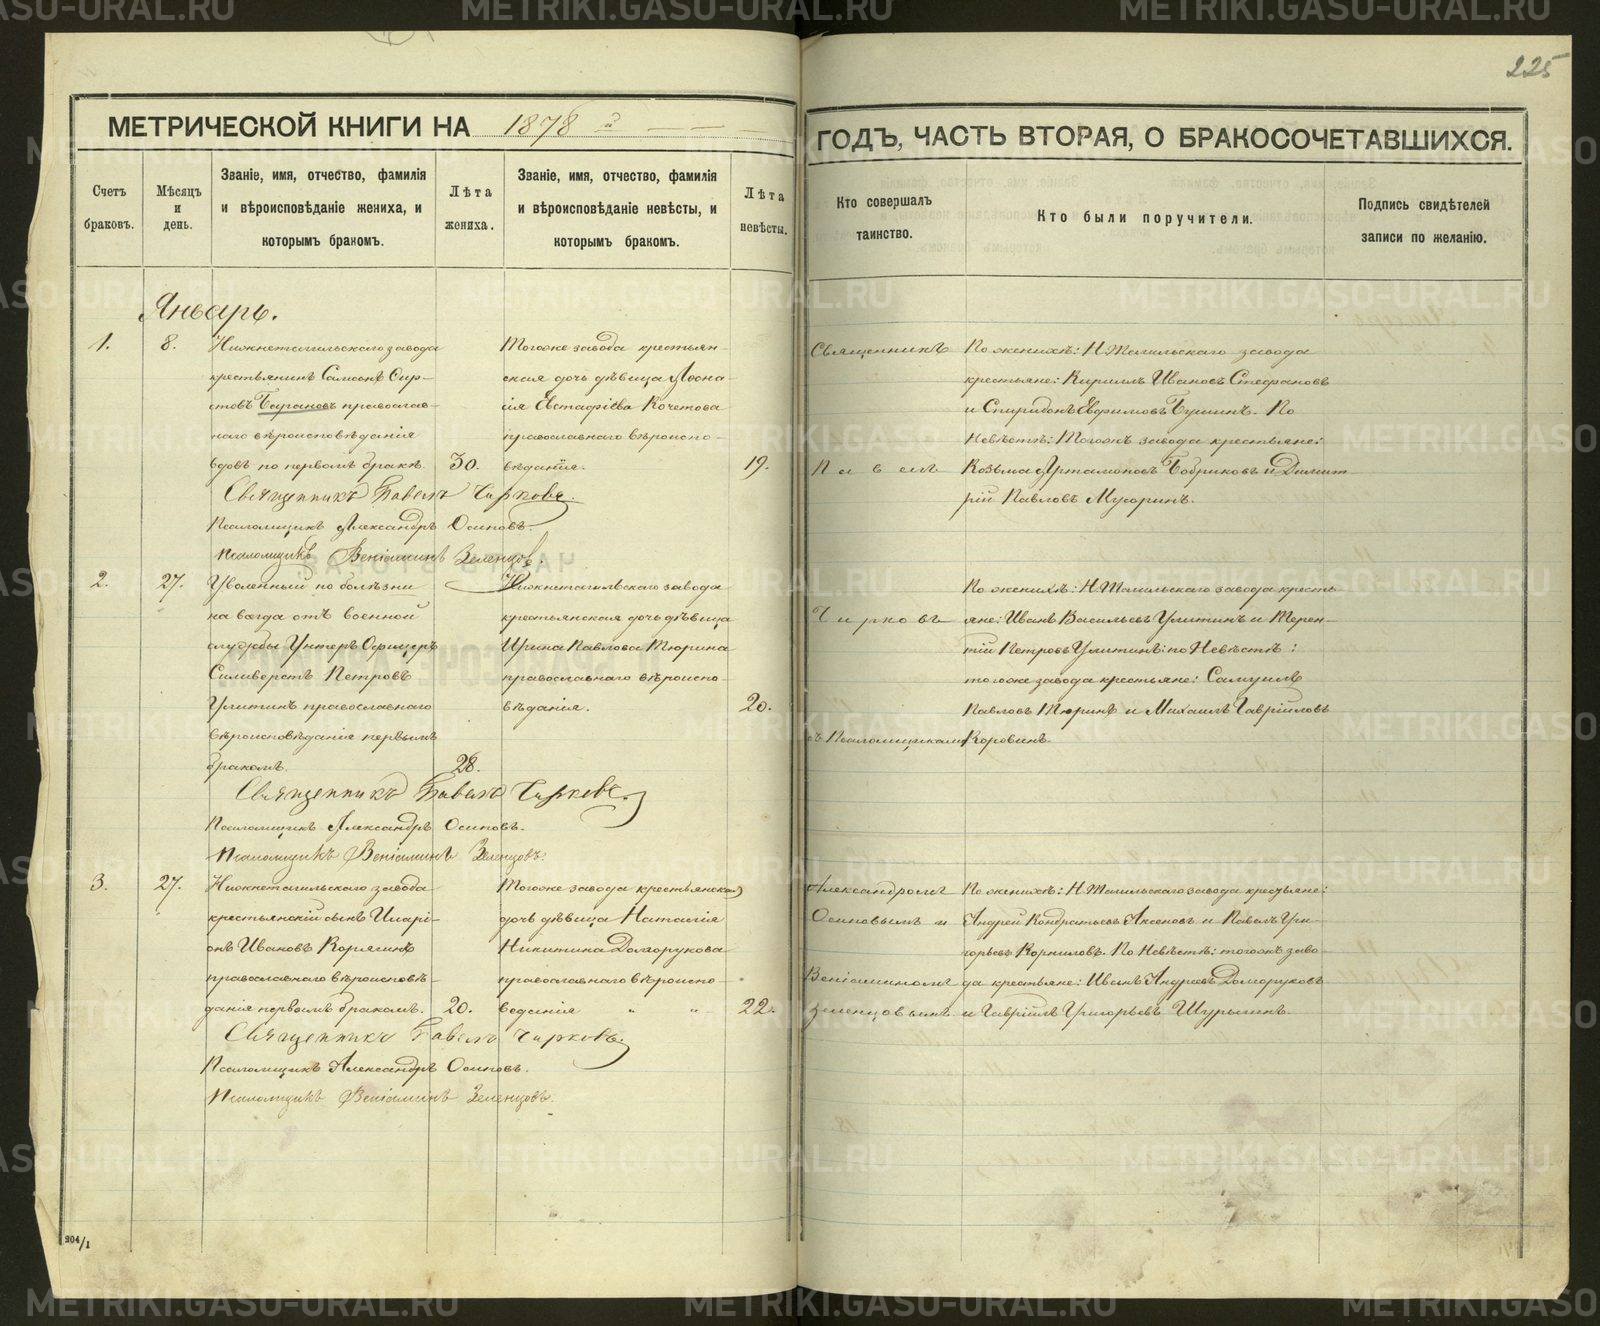 225
МЕТРИЧЕСКОЙ КНИГИ НА 1878 й
ГОДЪ, ЧАСТЬ ВТОРАЯ, О БРАКОСОЧЕТАВШИХСЯ.
Счетъ браковъ.
Мѣсяцъ и день.
Званіе, имя, отчество, фамилія и вѣроисповѣданіе жениха, и которымъ бракомъ.
Лѣта жениха.
Званіе, имя, отчество, фамилія и вѣроисповѣданіе невѣсты, и которымъ бракомъ.
Лѣта невѣсты.
Кто совершалъ таинство.
Кто были поручители.
Подпись свидѣтелей записи по желанію.
Январь.
1.
8.
Нижнетагильскаго завода
крестьянинъ Самсонъ Сир-
стовъ Барановъ православ-
наго вѣроисповѣданія
вдовъ по первомъ бракѣ.
30.
Тогоже завода крестьян-
ская дочь дѣвица Аѳана-
сія Евстафіева Кочетова
православнаго вѣроиспо-
вѣданія.
19.
Священникъ
Павелъ
По женихѣ: Н.Тагильскаго завода
крестьяне: Кириллъ Ивановъ Стефановъ
и Спиридонъ Евфимовъ Бушинъ. По
Невѣстѣ: Тогожъ завода крестьяне:
Козьма Артамоновъ Бобриковъ и Димит
рій Павловъ Мусоринъ.
Священникъ Павелъ Чирковъ.
Псаломщикъ Александръ Осиповъ.
Псаломщикъ Веніаминъ Зеленцовъ.
2.
27.
Уволенный по болѣзни
на всегда отъ военной
службы Унтеръ Офицеръ
Силиверстъ Петровъ
Улитинъ православнаго
вѣроисповѣданія первымъ
бракомъ.
28.
Нижнетагильскаго завода
крестьянская дочь дѣвица
Ирина Павлова Тюрина
православнаго вѣроиспо-
вѣданія.
20.
Чирковъ
съ Псаломщиками
По женихѣ: Н.Тагильскаго завода кресть-
яне: Иванъ Васильевъ Улитинъ и Терен-
тій Петровъ Улитинъ: по Невѣстѣ:
тогоже завода крестьяне: Самуилъ
Павловъ Тюринъ и Михаилъ Гавріиловъ
Коровинъ.
Священникъ Павелъ Чирковъ.
Псаломщикъ Александръ Осиповъ.
Псаломщикъ Веніаминъ Зеленцовъ.
3.
27.
Нижнетагильскаго завода
крестьянскій сынъ Иларі-
онъ Ивановъ Корягинъ
православнаго вѣроисповѣ-
данія первымъ бракомъ.
20.
Тогоже завода крестьянская
дочь дѣвица Наталія
Никитина Долгорукова
православнаго вѣроиспо-
веданія " "
22.
Александромъ
Осиповымъ и
Веніаминомъ
Зеленцовымъ
По женихѣ: Н.Тагильскаго завода крестьяне:
Андрей Кондратьевъ Аксеновъ и Павелъ Гри-
горьевъ Корниловъ. По Невѣстѣ: тогожъ заво-
да крестьяне: Иванъ Андреевъ Долгоруковъ
и Гавріилъ Григорьевъ Шурыгинъ.
Священникъ Павелъ Чирковъ.
Псаломщикъ Александръ Осиповъ.
Псаломщикъ Веніаминъ Зеленцовъ.
204/1
METRIKI.GASO-URAL.RU